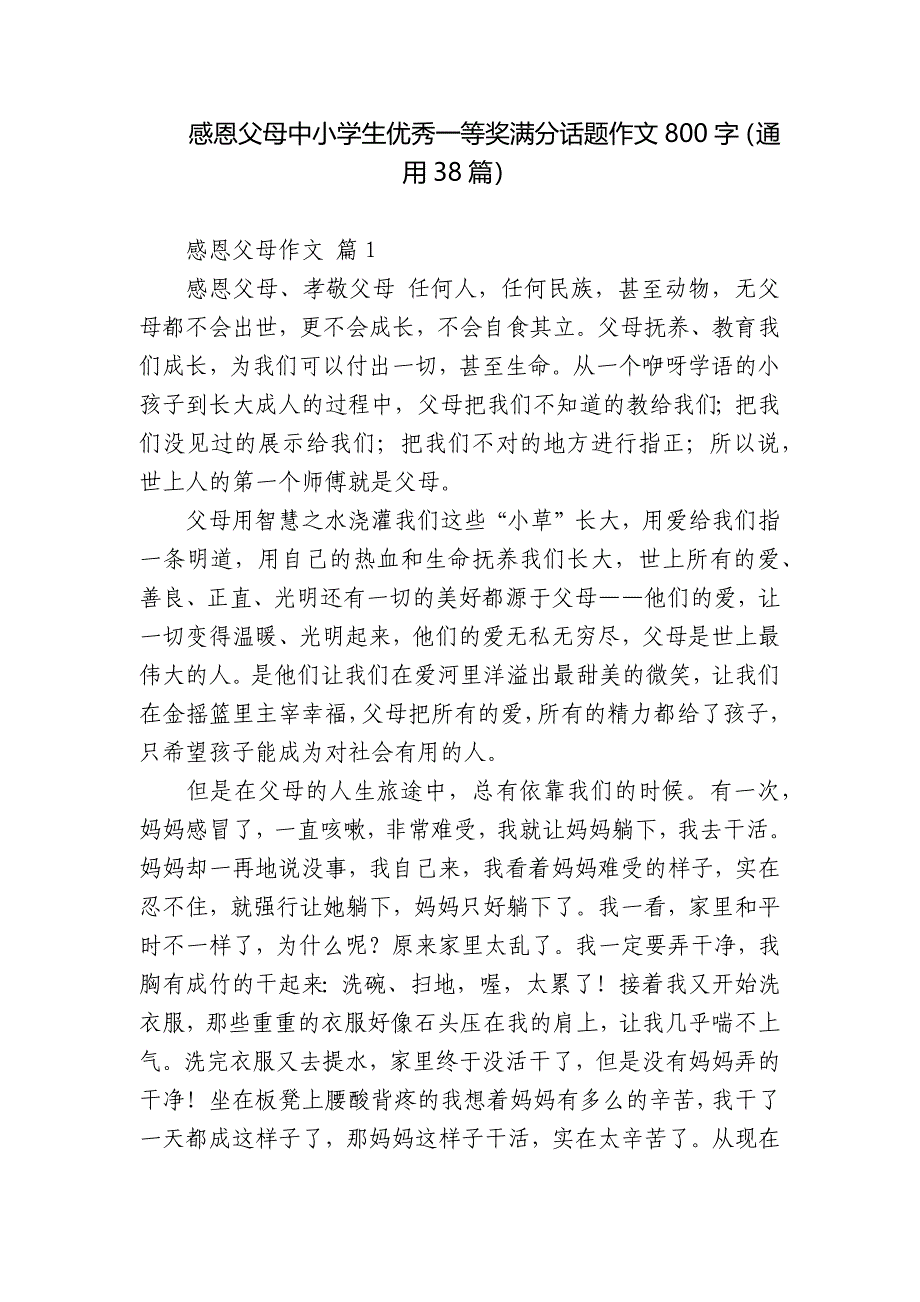 感恩父母中小学生优秀一等奖满分话题作文 800 字（通
用 38 篇）
感恩父母作文 篇 1
感恩父母、孝敬父母 任何人，任何民族，甚至动物，无父
母都不会出世，更不会成长，不会自食其立。父母抚养、教育我
们成长，为我们可以付出一切，甚至生命。从一个咿呀学语的小
孩子到长大成人的过程中，父母把我们不知道的教给我们；把我
们没见过的展示给我们；把我们不对的地方进行指正；所以说，
世上人的第一个师傅就是父母。
父母用智慧之水浇灌我们这些“小草”长大，用爱给我们指
一条明道，用自己的热血和生命抚养我们长大，世上所有的爱、
善良、正直、光明还有一切的美好都源于父母——他们的爱，让
一切变得温暖、光明起来，他们的爱无私无穷尽，父母是世上最
伟大的人。是他们让我们在爱河里洋溢出最甜美的微笑，让我们
在金摇篮里主宰幸福，父母把所有的爱，所有的精力都给了孩子，
只希望孩子能成为对社会有用的人。
但是在父母的人生旅途中，总有依靠我们的时候。有一次，
妈妈感冒了，一直咳嗽，非常难受，我就让妈妈躺下，我去干活。
妈妈却一再地说没事，我自己来，我看着妈妈难受的样子，实在
忍不住，就强行让她躺下，妈妈只好躺下了。我一看，家里和平
时不一样了，为什么呢？原来家里太乱了。我一定要弄干净，我
胸有成竹的干起来：洗碗、扫地，喔，太累了！接着我又开始洗
衣服，那些重重的衣服好像石头压在我的肩上，让我几乎喘不上
气。洗完衣服又去提水，家里终于没活干了，但是没有妈妈弄的
干净！坐在板凳上腰酸背疼的我想着妈妈有多么的辛苦，我干了
一天都成这样子了，那妈妈这样子干活，实在太辛苦了。从现在